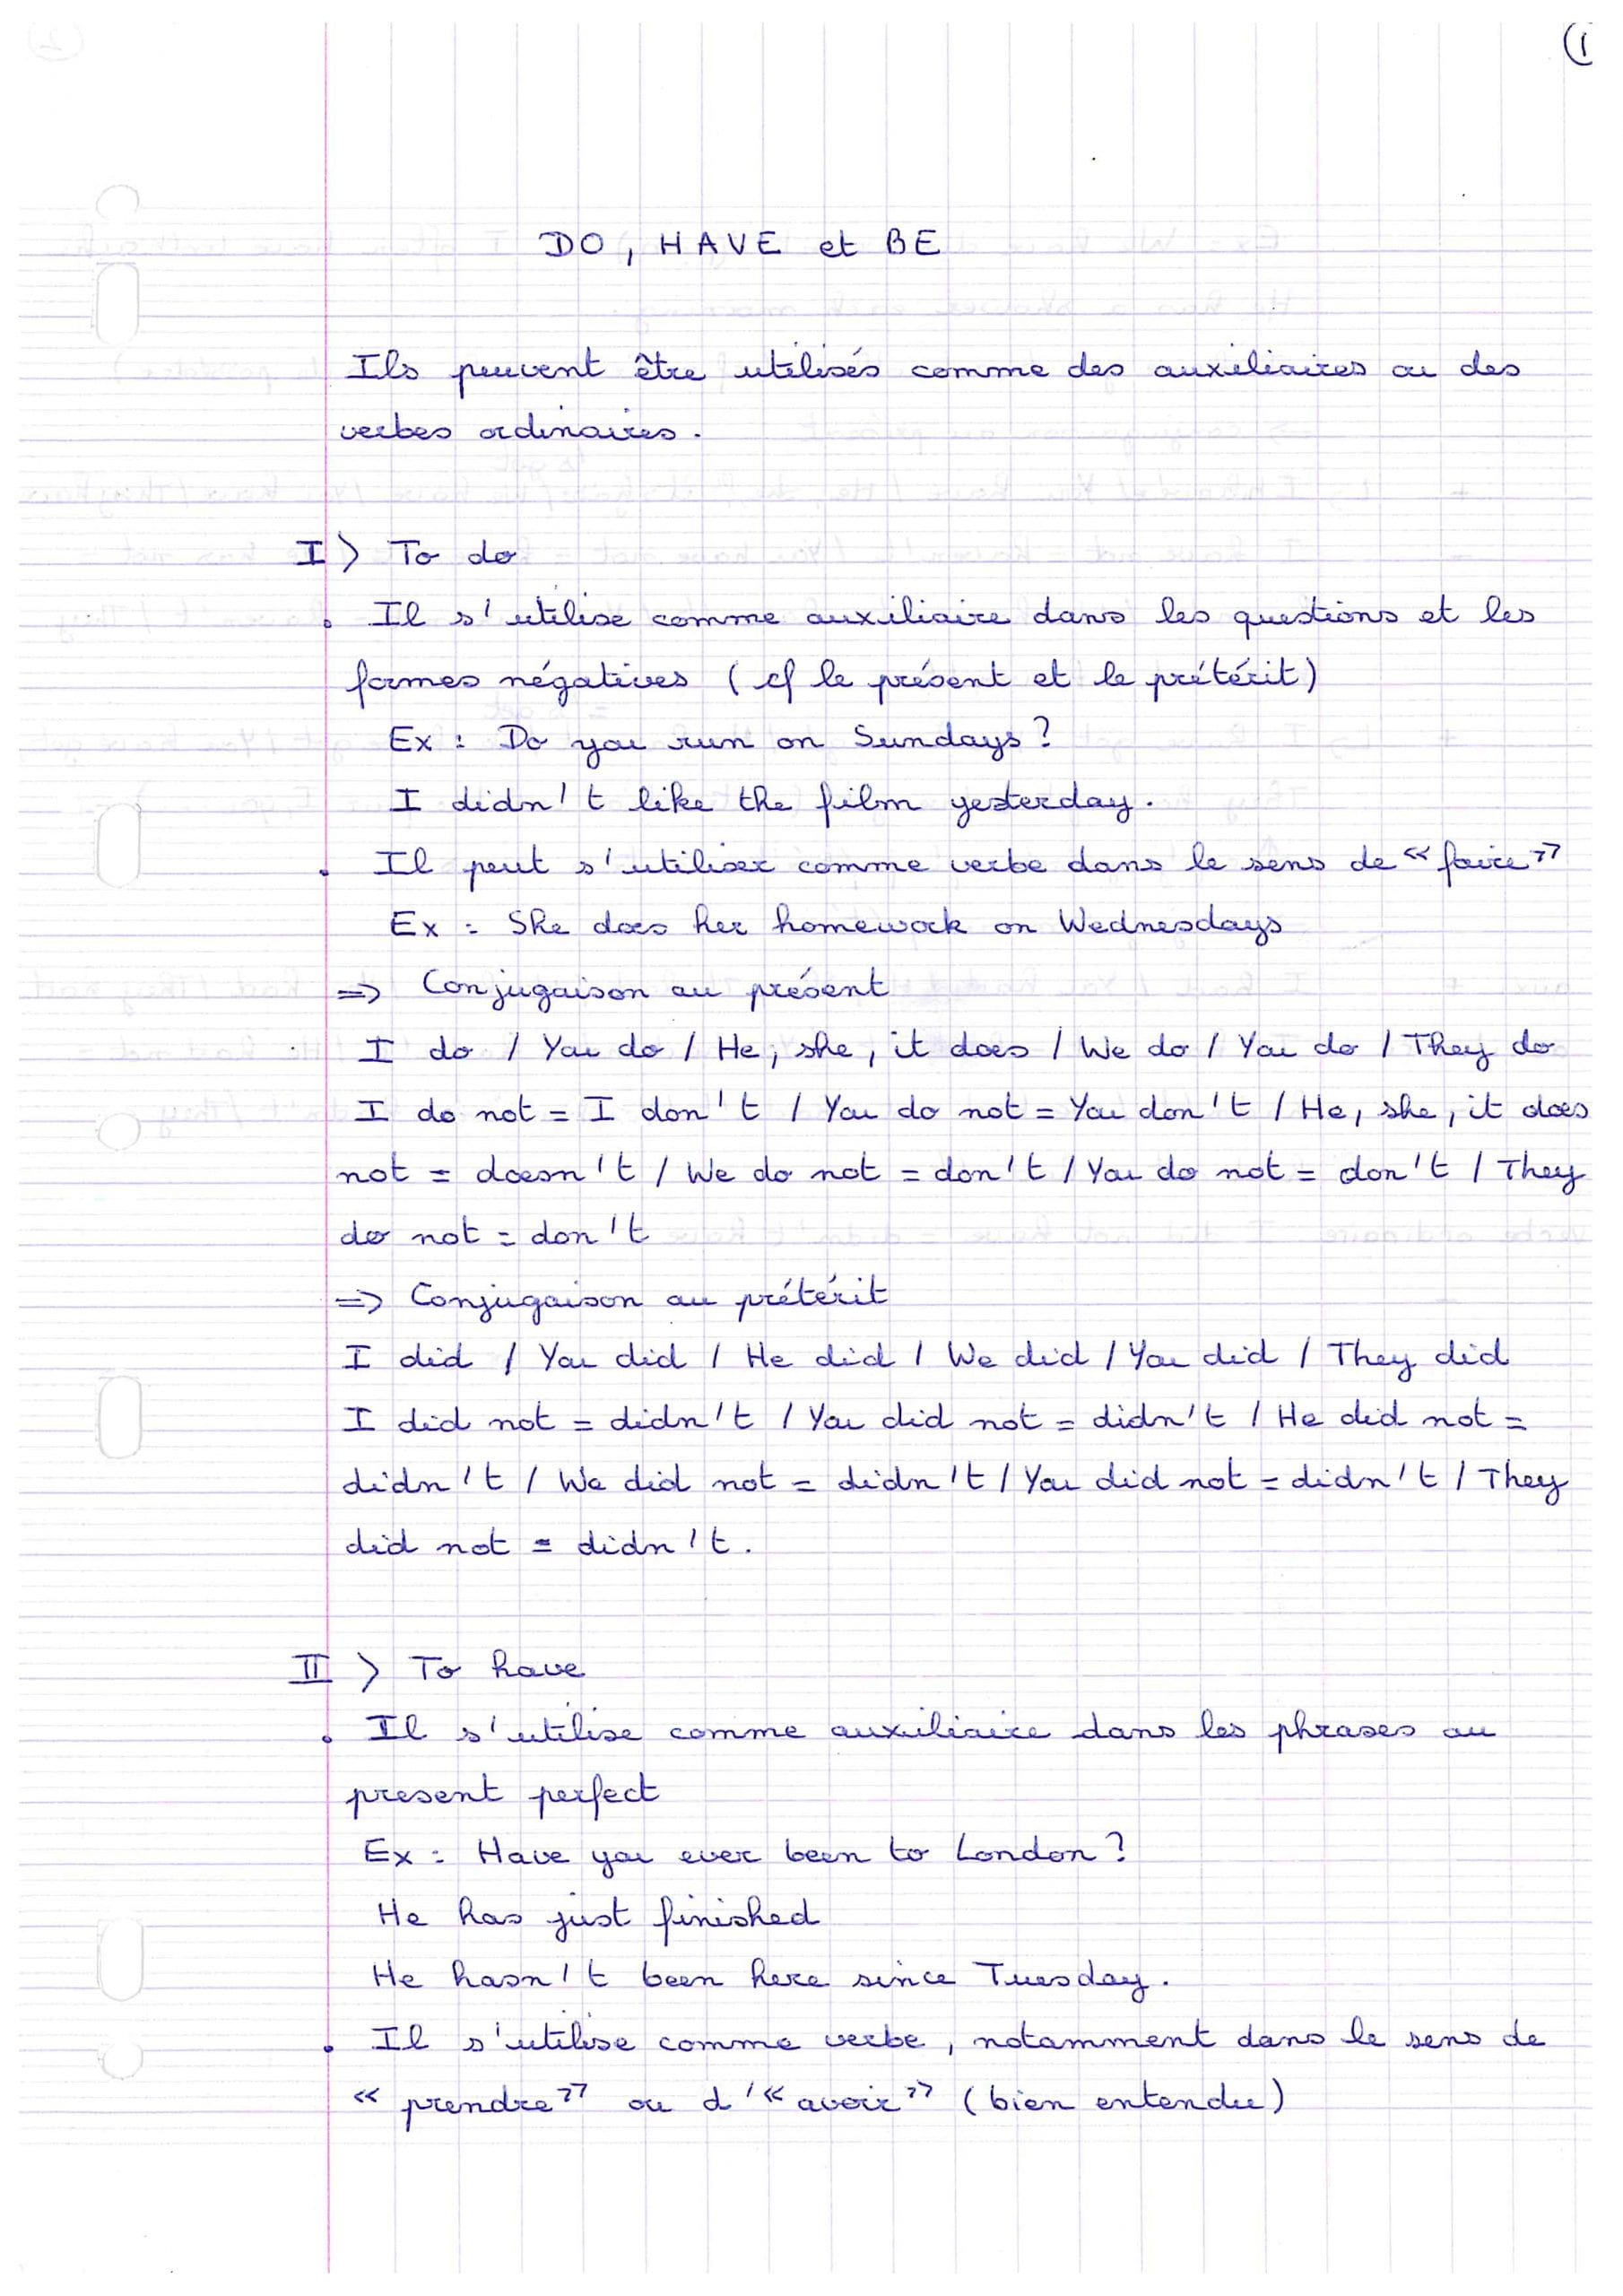 (1
DO, HAVE et BE
Ils peuvent être utilisés comme des auxiliaires ou des
verbes ordinaires.
I) To do
. Il s'utilise comme auxiliaire dans les questions et les
formes négatives (cf le présent et le prétérit)
Ex : Do you run on Sundays ?
I didn't like the film yesterday.
. Il peut s'utiliser comme verbe dans le sens de « faire »
Ex : She does her homework on Wednesdays
=> Conjugaison au présent
I do / You do / He, she, it does / We do / You do / They do
I do not = I don't / You do not = You don't / He, she, it does
not = doesn't / We do not = don't / You do not = don't / They
do not = don't
=> Conjugaison au prétérit
I did / You did / He did / We did / You did / They did
I did not = didn't / You did not = didn't / He did not =
didn't / We did not = didn't / You did not = didn't / They
did not = didn't.
II) To have
. Il s'utilise comme auxiliaire dans les phrases au
present perfect
Ex : Have you ever been to London ?
He has just finished
He hasn't been here since Tuesday.
. Il s'utilise comme verbe, notamment dans le sens de
« prendre » ou d'« avoir » (bien entendu)